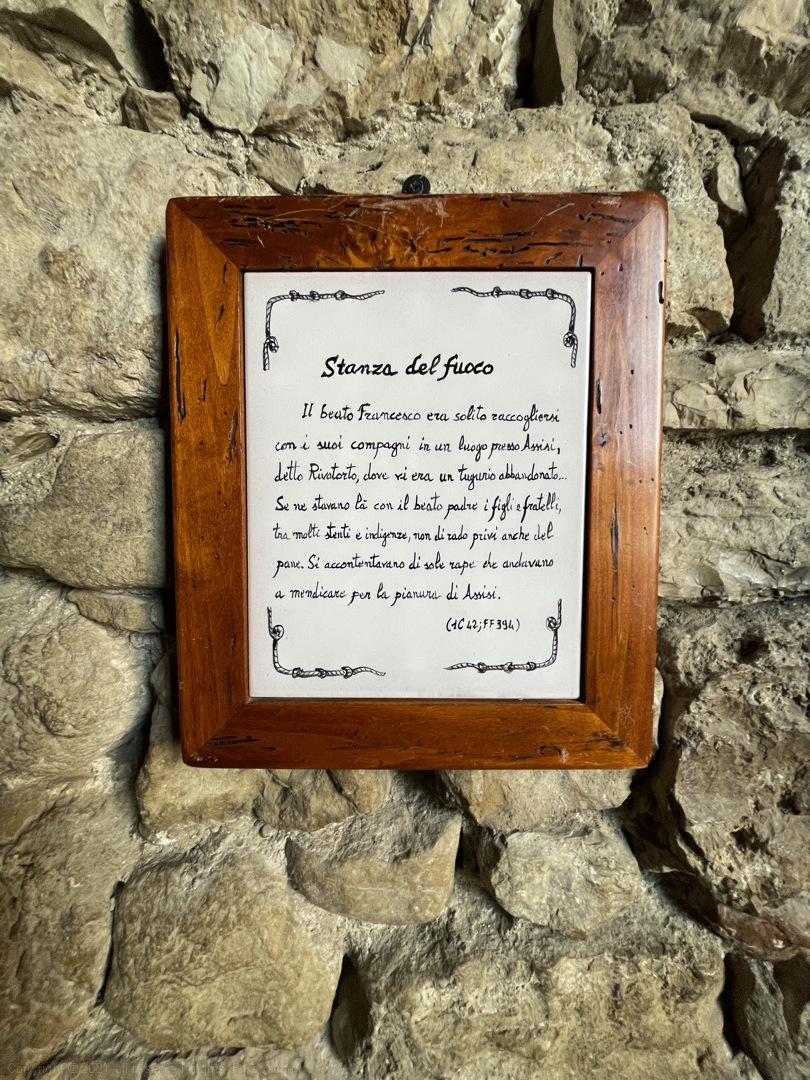 Stanza del fuoco
Il beato Francesco era solito raccogliersi
con i suoi compagni in un luogo presso Assisi,
detto Rivotorto, dove vi era un tugurio abbandonato...
Se ne stavano là con il beato padre i figli e fratelli,
tra molti stenti e indigenze, non di rado privi anche del
pane. Si accontentavano di sole rape che andavano
a mendicare per la pianura di Assisi.
(1C 42; FF 394)
Copyright © 2021 all